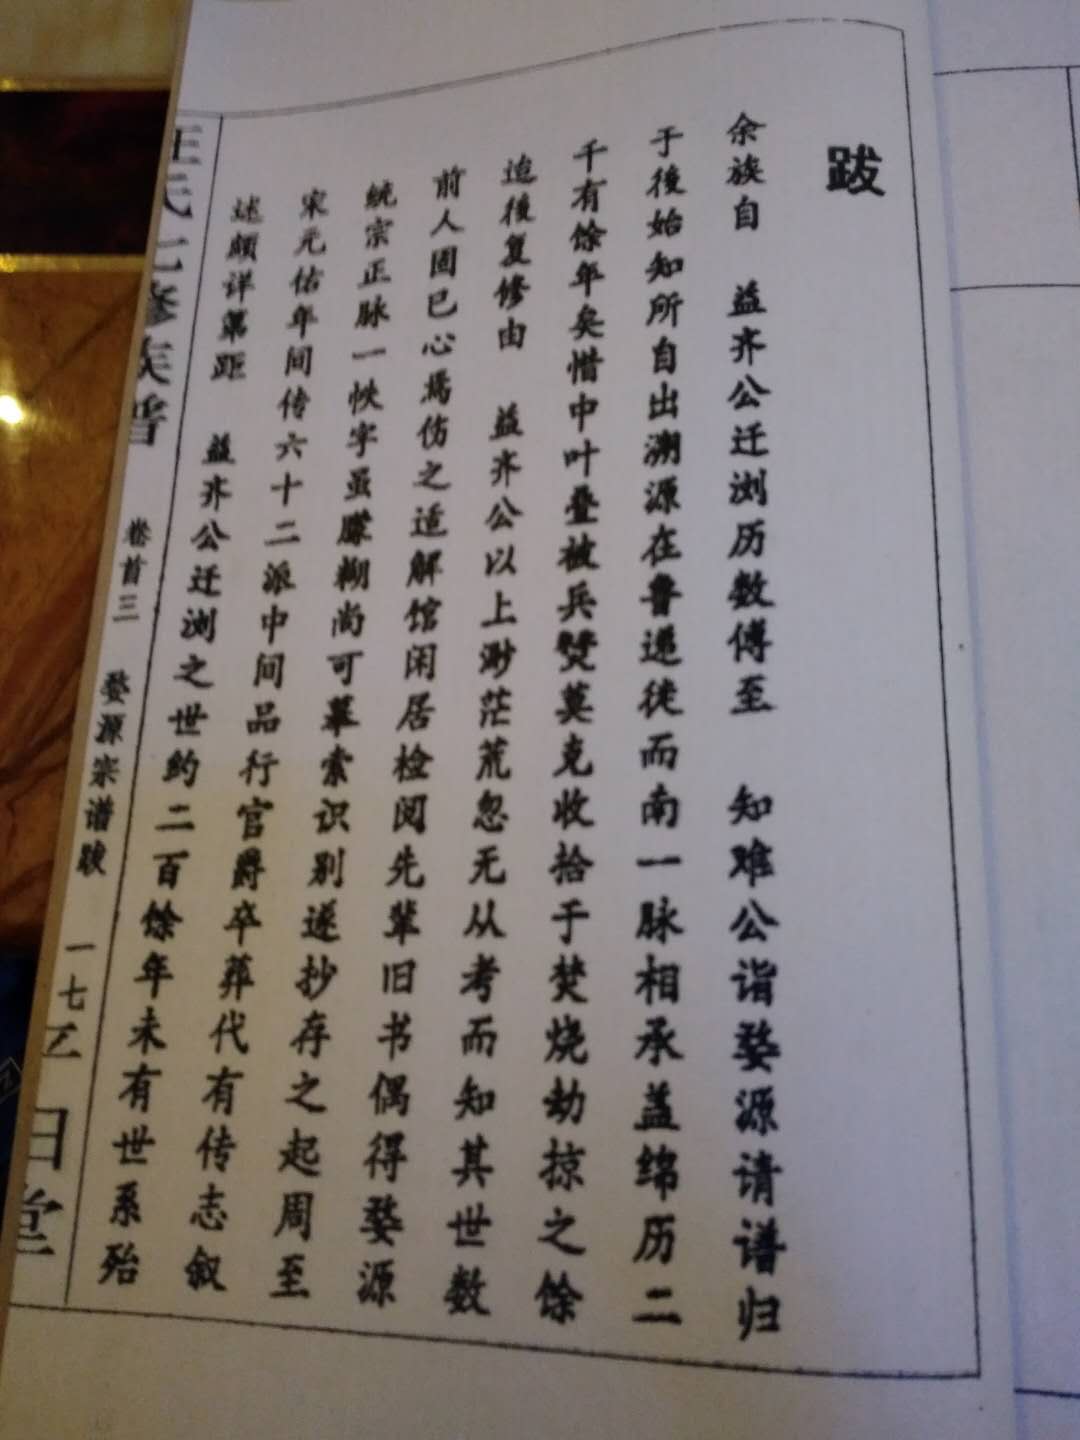 跋
余族自 益齐公迁浏历数傅至 知难公诣婺源请谱归
于後始知所自出溯源在鲁递徙而南一脉相承盖绵历二
千有馀年矣惜中叶叠被兵燹莫克收拾于焚烧劫掠之馀
迨後复修由 益齐公以上渺茫荒忽无从考而知其世数
前人固已心焉伤之适解馆闲居检阅先辈旧书偶得婺源
統宗正脉一帙字虽朦糊尚可摹索识别遂抄存之起周至
宋元佑年间传六十二派中间品行官爵卒葬代有传志叙
述颇详第距 益齐公迁浏之世约二百馀年未有世系殆
汪氏七修族普
卷首三
婺源宗谱跋
一七